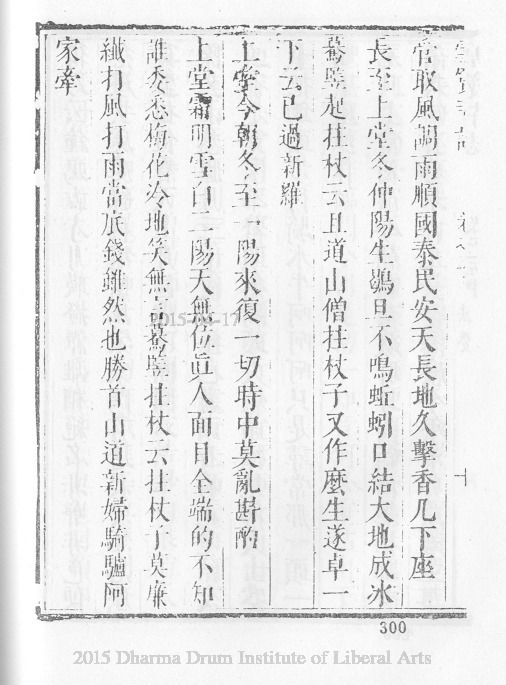 管取風調雨順國泰民安天長地久擊香几下座
長至上堂冬仲陽生鶡旦不鳴蚯蚓口結大地成冰
驀竪起拄杖云且道山僧拄杖子又作麼生遂卓一
下云已過新羅
上堂今朝冬至一陽來復一切時中莫亂斟酌
上堂霜明雪白二陽天無位眞人面目全端的不知
誰委悉梅花冷地笑無言驀竪拄杖云拄杖子莫廉
纖打風打雨當底錢雖然也勝首山道新婦騎驢阿
家牽
十
300
2015-05-17
2015 Dharma Drum Institute of Liberal Arts